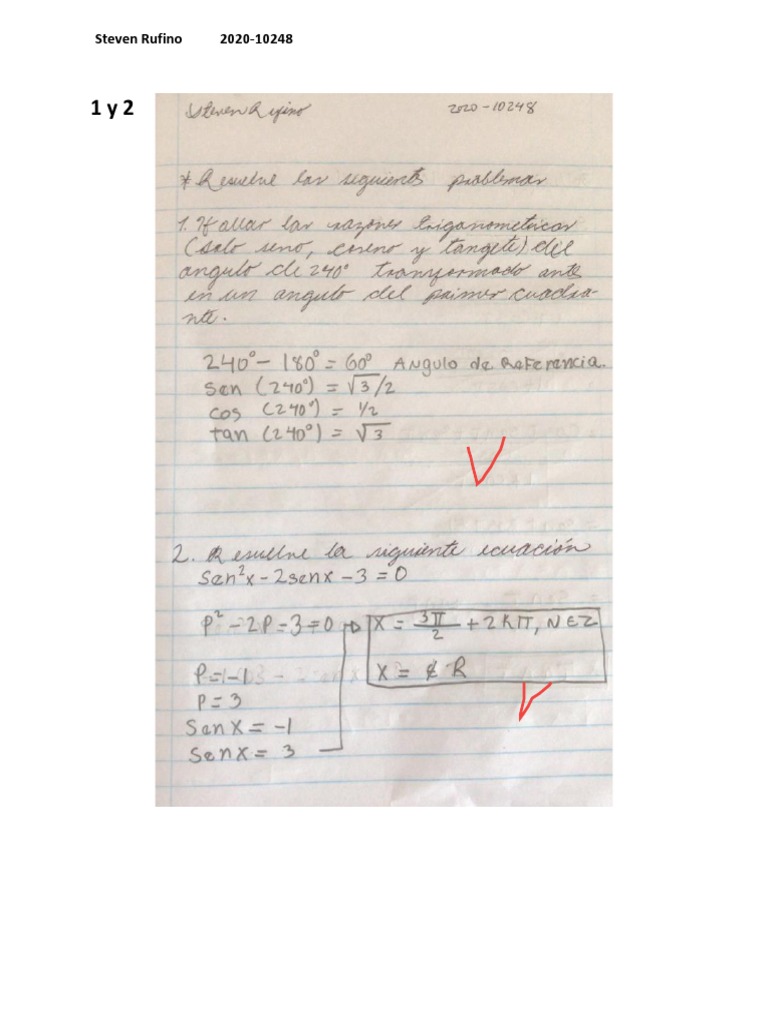 Steven Rufino 2020-10248
1 y 2
Steven Rufino 2020-10248
* Resuelve las siguients problemas
1. Hallar las razones triganometricas
(solo seno, coseno y tangete) del
angulo de 240° transformado ante
en un angulo del primer cuadra-
nte.
240° - 180° = 60° Angulo de Referencia.
sen (240°) = √3/2
cos (240°) = 1/2
tan (240°) = √3
2. Resuelve la siguiente ecuación
Sen²x - 2senx - 3 = 0
P² - 2P = 3 = 0
X = 3π/2 + 2Kπ, N E Z
P = -1
X = ∉ R
P = 3
Sen X = -1
Sen X = 3